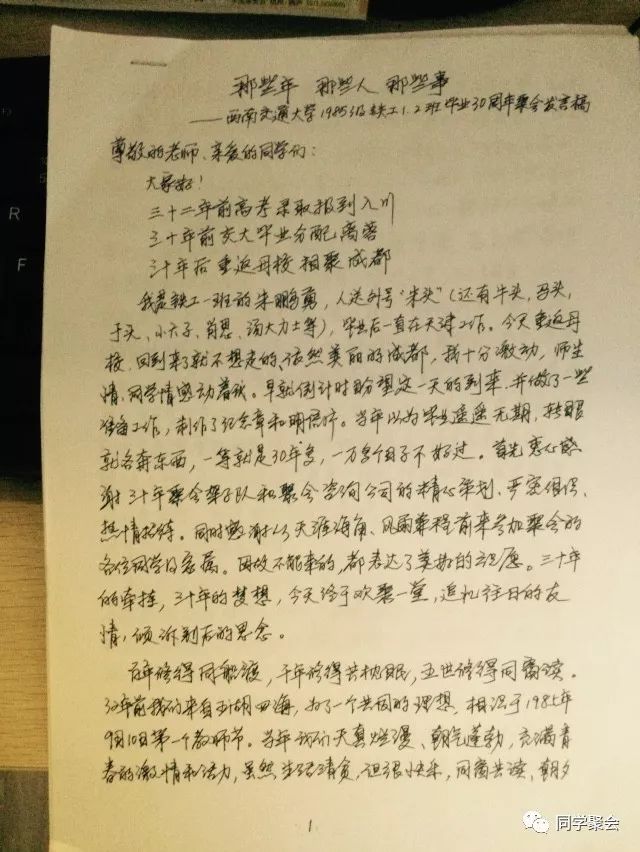 那些年 那些人 那些事
——西南交通大学1985级铁工1.2班毕业30周年聚会发言稿
尊敬的老师、亲爱的同学们：
大家好！
三十二年前高考录取报到入川
三十年前交大毕业分配离蓉
三十年后重返母校相聚成都
我是铁工一班的朱鹏勇，人送外号“朱头”（还有牛头，马头，
于头、小六子、肖恩、汤大力士等），毕业后一直在天津工作。今天重返母
校，回到来了就不想走的、依然美丽的成都，我十分激动，师生
情、同学情感动着我。早就倒计时盼望这一天的到来，并做了一些
准备工作，制作了纪念章和明信片。当年以为毕业遥遥无期，转眼
就各奔东西，一等就是30年多，一万多个日子不好过。首先衷心感
谢三十年聚会班子队和聚会咨询公司的精心策划、严密组织、
热情招待。同时感谢从天涯海角、风雨兼程前来参加聚会的
各位同学及家属。因故不能来的，都表达了美好的祝愿。三十年
的牵挂，三十年的梦想，今天终于欢聚一堂，追忆往日的友
情，倾诉别后的思念。
百年修得同船渡，千年修得共枕眠，五世修得同窗读。
32年前我们来自五湖四海，为了一个共同的理想，相识于1985年
9月10日第一个教师节。当年我们天真烂漫、朝气蓬勃，充满青
春的激情和活力，虽然生活清贫，但很快乐，同窗共读、朝夕
1
同学聚会